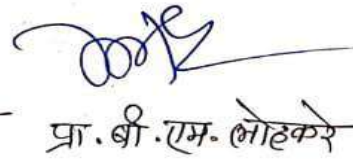 प्रा. बी. एम. लोहकरे